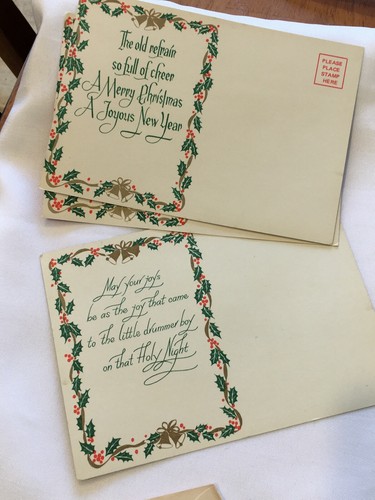 The old refrain
so full of cheer
A Merry Christmas
A Joyous New Year
PLEASE
PLACE
STAMP
HERE
May your joys
be as the joy that came
to the little drummer boy
on that Holy Night